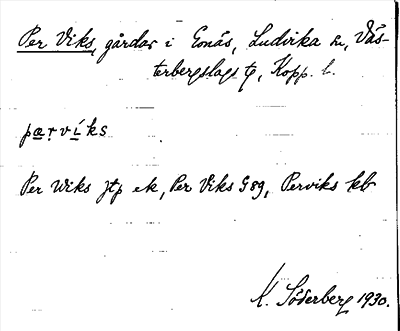 Per Viks, gårdar i Gonäs, Ludvika sn, Väs-
terbergslags tg, Kopp. l.
pärvíks
Per Wiks Jtp ek, Per Viks G 89, Perviks kb
K. Söderberg 1930.